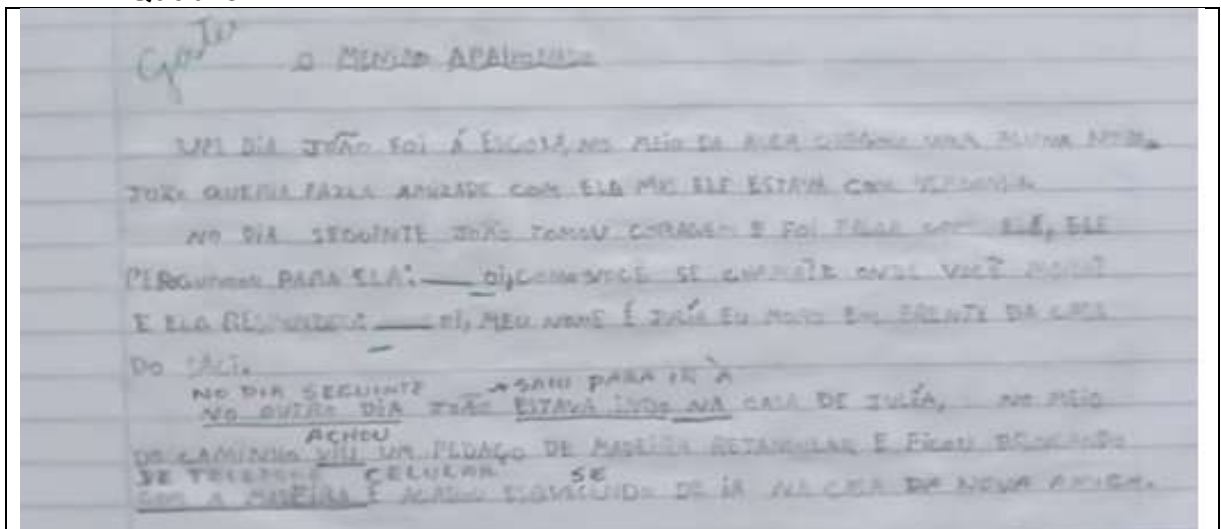 Gostei
O MENINO APAIXONADO
UM DIA JOÃO FOI Á ESCOLA, NO MEIO DA AULA CHEGOU UMA ALUNA NOVA.
JOÃO QUERIA FAZER AMIZADE COM ELA MAS ELE ESTAVA COM VERGONHA.
NO DIA SEGUINTE JOÃO TOMOU CORAGEM E FOI FALAR COM ELA, ELE
PERGUNTOU PARA ELA: — OI, COMO VOCÊ SE CHAMA? E ONDE VOCÊ MORA?
E ELA RESPONDEU: — OI, MEU NOME É JULÍA EU MORO EM FRENTE DA CASA
DO
NO DIA SEGUINTE SAIU PARA IR À
NO OUTRO DIA JOÃO ESTAVA INDO NA CASA DE JULÍA, NO MEIO
ACHOU
DO CAMINHO VIU UM PEDAÇO DE MADEIRA RETANGULAR E FICOU BRINCANDO
DE TELEFONE CELULAR SE
COM A MADEIRA E ACABOU ESQUECENDO DE IR NA CASA DA NOVA AMIGA.